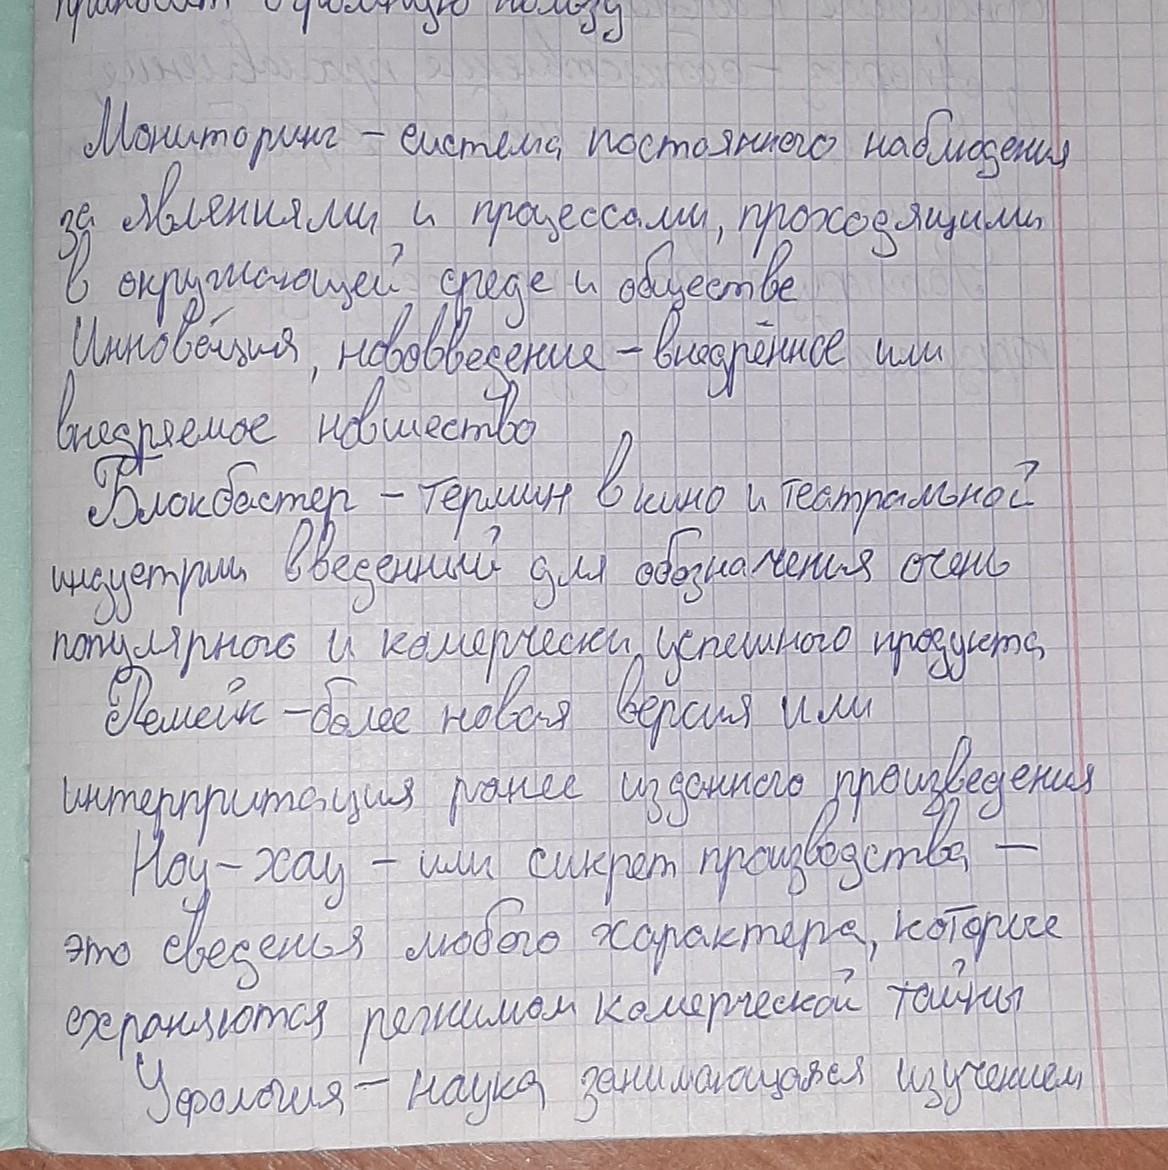 приносит огромную пользу
Мониторинг – система постоянного наблюдения
за явлениями и процессами, проходящими
в окружающей среде и обществе
Инновация, нововведение – внедрённое или
внедряемое новшество
Блокбастер – термин в кино и театральной
индустрии введенный для обозначения очень
популярного и комерчески успешного продукта
Ремейк – более новая версия или
интерпритация ранее изданного произведения
Ноу-хау – или сикрет производства –
это сведенья любого характера, которые
охраняются режимом комерческой тайны
Уфология – наука занимающаяся изучением